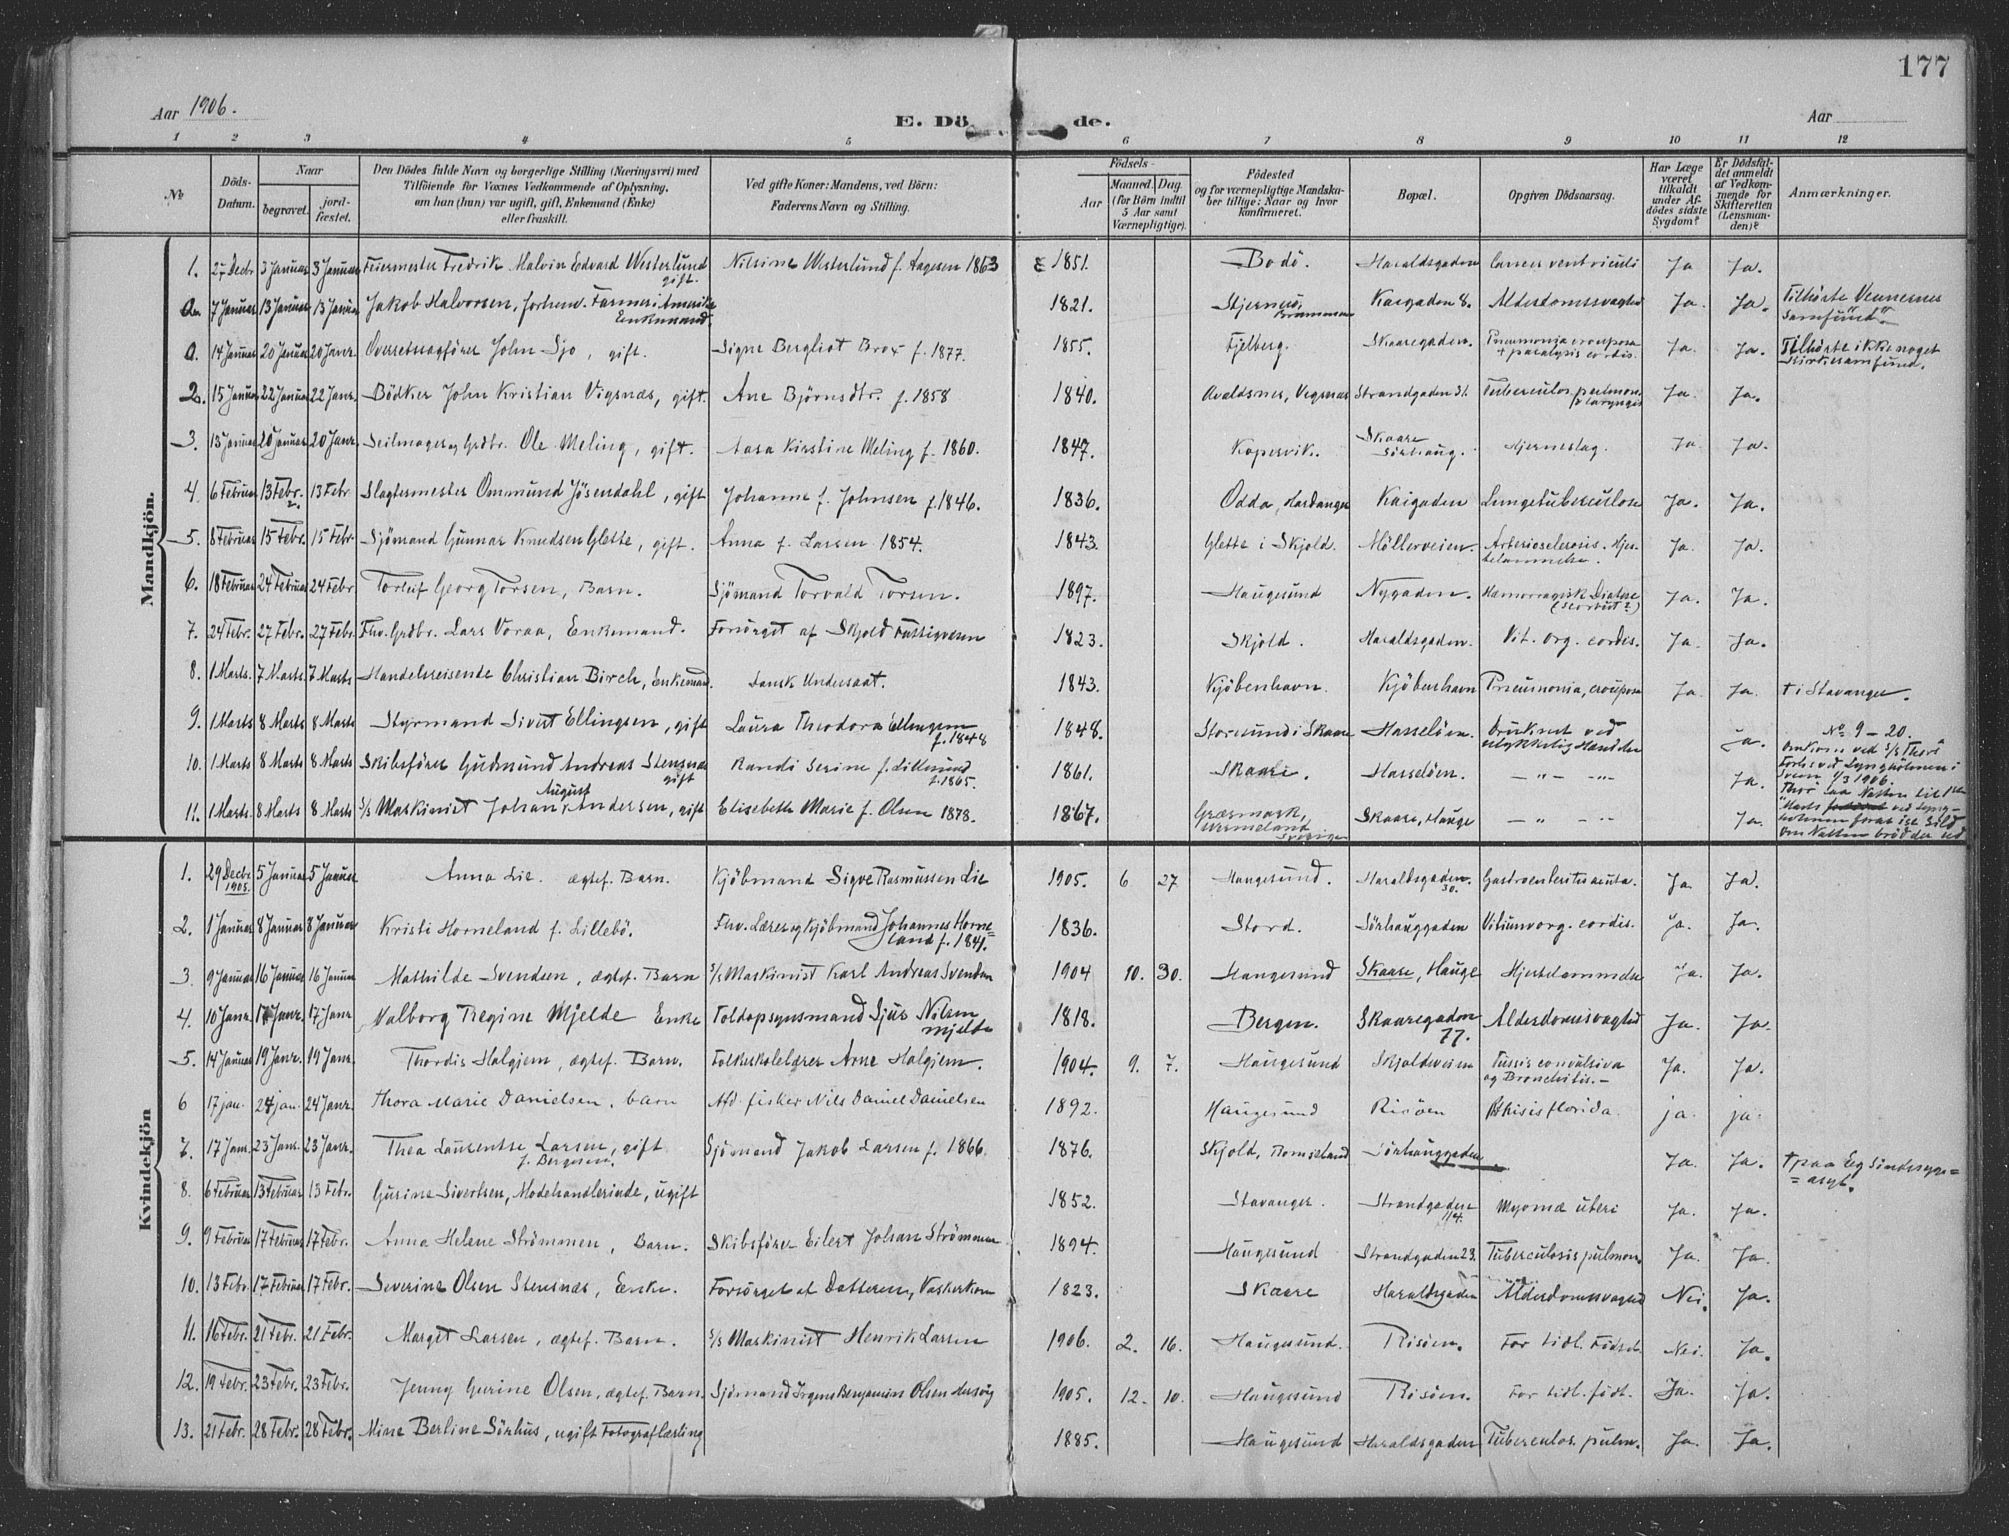 177
Aar 1906.
E. Dö de.
Aar
1 2 3 4 5 6 7 8 9 10 11 12
№
Döds-Datum.
Naar
begravet.
jord-fæstet.
Den Dödes fulde Navn og borgerlige Stilling (Næringsvei) med
Tilföiende for Voxnes Vedkommende af Oplysning,
om han (hun) var ugift, gift, Enkemand (Enke)
eller fraskilt.
Ved gifte Koner: Mandens, ved Börn:
Faderens Navn og Stilling.
Födsels-
Aar
Maaned. Dag
(for Börn indtil
5 Aar samt
Værnepligtige).
Födested
og for værnepligtige Mandska-
ber tillige: Naar og hvor
konfirmeret.
Bopæl.
Opgiven Dödsaarsag.
Har Læge
været
tilkaldt
under Af-
dödes sidste
Sygdom?
Er Dödsfal-
det anmeldt
af Vedkom-
mende for
Skifteretten
(Lensman-
den)?
Anmærkninger.
Mandkjön.
1. 27 Decbr 3 Januar 3 Januar Feiermester Fredrik Malvin Edvard Westerlund gift. Nilsine Westerlund f. Aagesen 1863 1851. Bodö. Haraldsgaden Cancer ventriculi Ja Ja.
a. 7 Januar 13 Januar 13 Januar Jakob Halvorsen, forhenv. Farmer i Amerika Enkemand. 1821. Stjernerö, Kaigaden 8. Alderdomssvaghed Ja. Ja. Tilhörte Vennernes Samfund.
a. 14 Januar 20 Januar 20 Janr. Overretssagförer John Sjo, gift. Signe Bergliot Brox f. 1877. 1855. Fjelberg. Skaaregaden. Pneumonia crouposa + paralysis cordis. Ja. Ja. Tilhörte ikke noget Kirkesamfund.
2. 15 Januar 22 Januar 22 Janr. Bödker John Kristian Vigsnæs, gift. Ane Björnsdtr. f. 1858 1840. Avaldsnes, Vegsnæs Strandgaden 31. Tuberculos. pulmon. & laryngis Ja. Ja.
3. 13 Januar 20 Januar 20 Janr. Seilmager og Grdbr. Ole Meling, gift. Aasa Kirstine Meling f. 1860. 1847. Kopervik. Skaare Sörhaug. Hjerneslag. Ja Ja.
4. 6 Februar 13 Febr. 13 Febr Slagtermester Ommund Jösendahl, gift Johanne f. Johnsen f. 1846. 1836. Odda, Hardanger Kaigaden Lungetuberculose Ja. Ja.
5. 8 Februar 15 Febr. 15 Febr. Sjömand Gunnar Knudsen Glette, gift. Anna f. Larsen 1854. 1843. Glette i Skjold. Möllerveien. Arteriosclerosis. Hjertelammelse. Ja. Ja.
6. 18 Februar 24 Februar 24 Febr Torleif Georg Torsen, Barn. Sjömand Torvald Torsen. 1897. Haugesund Nygaden. Hæmorragisk Diatese (Scorbut?) Ja. Ja.
7. 24 Febr. 27 Febr. 27 Febr. Fhv. Grdbr. Lars Voraa, Enkemand. Forsörget af Skjold Fattigvesen 1823. Skjold. Haraldsgaden. Vit. org. cordis. Ja. Ja.
8. 1 Marts. 7 Marts 7 Marts Handelsreisende Christian Birch, Enkemand. Dansk Undersaat. 1843. Kjöbenhavn. Kjöbenhavn Pneumonia, croupos Ja Ja. † i Stavanger.
9. 1 Marts 8 Marts 8 Marts Styrmand Sivert Ellingsen, gift Laura Theodora Ellingsen f. 1848 1848. Storesund i Skaare Hasselöen. Druknet ved ulykkelig Hændelse Ja. No 9 - 20.
10. 1 Marts 8 Marts 8 Marts Skibsförer Gudmund Andreas Stensnæs gift Randi Serine f. Lillesund f. 1865. 1861. Skaare. Hasselöen. — " — - " - Ja. Omkom ved S/S Thors Forlis ved Lyngholmen i Sveen 1/3 1906.
11. 1 Marts. 8 Marts 8 Marts S/S Maskinist Johan August Andersen, gift Elisebeth Marie f. Olsen 1878. 1867. Græsmark, Vermeland Sverige Skaare, Hauge — " — - " Ja. Thor laa Natten til 1ste Marts ved Lyngholmen foran ise Sild om Natten bröd der ud
Kvindekjön
1. 29 Decbr 1905. 5 Januar 5 Januar Anna Lie. ægtef. Barn. Kjöbmand Sigve Rasmussen Lie 1905. 6 27 Haugesund. Haraldsgaden. 30. Gastroenteritis acuta. Ja. Ja.
2. 1 Januar 8 Januar 8 Januar Kristi Horneland f. Lillebö. Fhv. Lærer og Kjöbmand Johannes Horneland f. 1841. 1836. Stord. Sörhauggaden Vitium org. cordis. Ja. Ja.
3 9 Januar 16 Januar 16 Januar Mathilde Svendsen, ægtef. Barn S/S Maskinist Karl Andreas Svendsen 1904 10. 30. Haugesund Skaare, Hauge Hjertelammelse Ja. Ja.
4. 10 Janr. 17 Janr. 17 Janr Valborg Regine Mjelde Enke Toldopsynsmand Sjur Nilsen Mjelde 1818. Bergen. Skaaregaden 77. Alderdomssvaghed Ja. Ja.
5. 14 Januar 19 Janr. 19 Janr. Thordis Halgjem, ægtef. Barn. Folkeskolelærer Arne Halgjem. 1904. 9. 7. Haugesund Skjoldveien Tussis convulsiva og Bronchitis.- Ja. Ja.
6 17 jan. 24 jan. 24 Janr. Thora Marie Danielsen, barn Afd. fisker Nils Daniel Danielsen 1892. Haugesund Risöen Phtisis florida. ja. ja.
7. 17 Janr. 23 Janr. 23 Janr. Thea Laurentse Larsen, gift f. Bergesen. Sjömand Jakob Larsen f. 1866. 1876. Skjold, Romseland Sörhauggaden Ja. Ja. † paa Eg Sindssyge=asyl.
8. 6 Februar 13 Februar 13 Febr. Gurine Sivertsen, Modehandlerinde, ugift 1852. Stavanger. Strandgaden 114. Myoma uteri Ja. Ja.
9. 9 Februar 17 Februar 17 Febr. Anna Helene Strömmen, Barn. Skibsförer Eilert Johan Strömmen 1894. Haugesund Strandgaden 23. Tuberculosis pulmon. Ja. Ja.
10. 13 Febr. 17 Februar 17 Febr. Severine Olsen Stensnæs, Enke. Forsörget af Datteren, Vaskerkone 1823. Skaare Haraldsgaden Alderdomssvaghed Nei. Ja.
11. 16 Febr. 21 Febr. 21 Febr. Marget Larsen, ægtef. Barn. S/S Maskinist Henrik Larsen 1906. 2. 16. Haugesund. Risöen. For tidl. Födsel. Nei. Ja.
12. 19 Febr. 23 Febr. 23 Febr. Jenny Gurine Olsen, ægtef. Barn. Sjömand Jrgens Benjamin Olsen 1905. 12. 10. Haugesund Risöen. For tidl. födt. Ja. Ja.
13. 21 Febr. 28 Febr. 28 Febr. Mine Berline Sörhus, ugift Fotograflærling 1885. Haugesund Haraldsgaden Tuberculos. pulm. Ja. Ja.